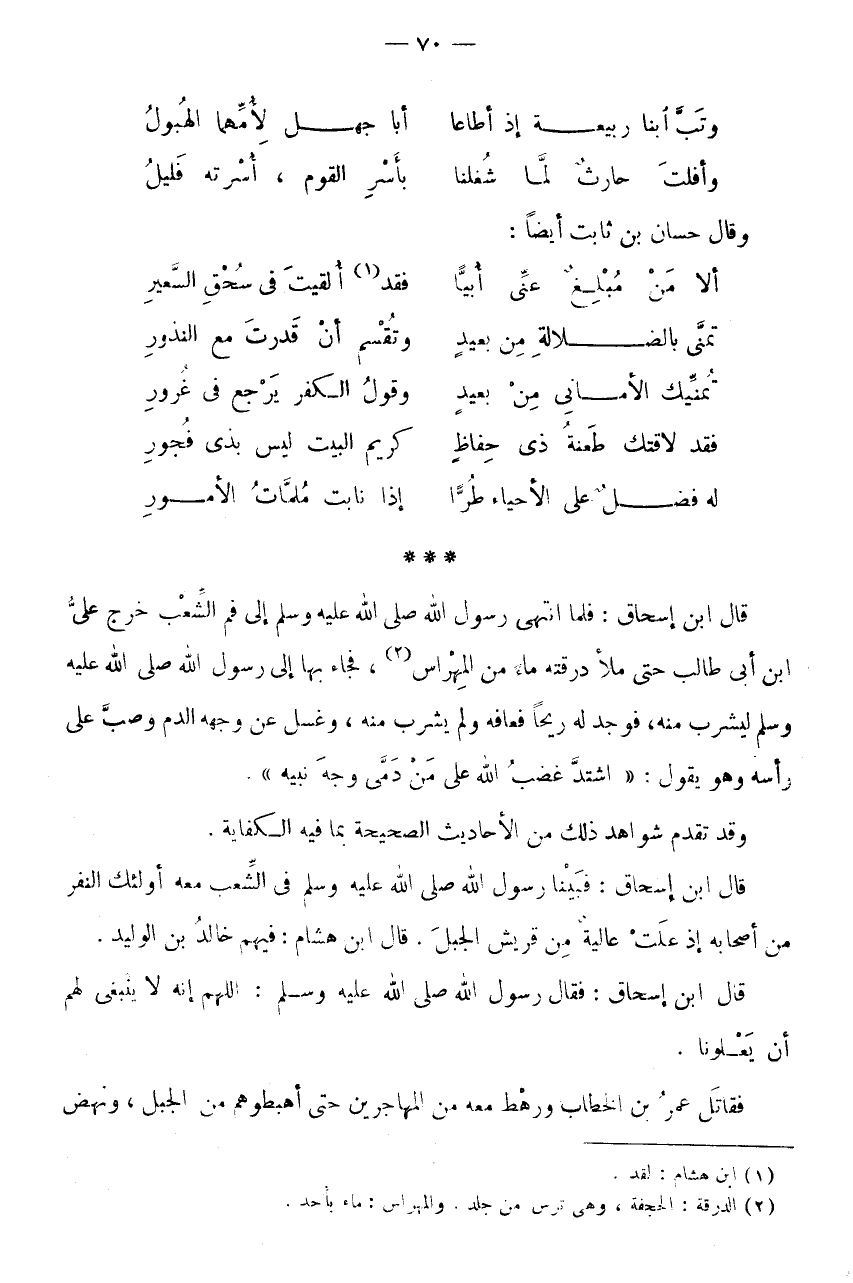 — ٧٠ —
وتَبَّ ٱبنا ربيعـــــة إذ أطاعا    أبا جهـــــل لِأُمِّهما الهُبولُ
وأفلتَ حارثٌ لمَّـا شُغلنا    بأَسْرِ القوم ، أُسْرته فَليلُ
وقال حسان بن ثابت أيضاً :
ألا مَنْ مُبْلِـغٌ عنِّى أُبيًّا    فقد(١) أُلقيتَ فى سُحْقِ السَّعيرِ
تمنَّى بالضـــــلالةِ مِن بعيدٍ    وتُقْسم أنْ قَدرتَ مع النذورِ
تُمنِّيك الأمـــانِى مِنْ بعيدٍ    وقولُ الـكفر يَرْجع فى غُرورِ
فقد لاقتك طَعنةُ ذى حِفاظٍ    كريم البيت ليس بذى فُجورِ
له فضـــــلٌ على الأحياء طُرًّا    إذا نابت مُلمَّاتُ الأمـــورِ
***
قال ابن إسحاق : فلما انتهى رسول الله صلى الله عليه وسلم إلى فم الشِّعْب خرج علىُّ
ابن أبى طالب حتى ملأ درقته ماءً من المِهْراس(٢) ، فجاء بها إلى رسول الله صلى الله عليه
وسلم ليشرب منه، فوجد له ريحاً فعافه ولم يشرب منه ، وغسل عن وجهه الدم وصبَّ على
رأسه وهو يقول : « اشتدَّ غضبُ الله على مَنْ دَمَّى وجهَ نبيه » .
وقد تقدم شواهد ذلك من الأحاديث الصحيحة بما فيه الـكفاية .
قال ابن إسحاق : فبَيْنا رسول الله صلى الله عليه وسلم فى الشِّعب معه أولئك النفر
من أصحابه إذ علَتْ عاليةٌ مِن قريش الجبلَ . قال ابن هشام : فيهم خالدُ بن الوليد .
قال ابن إسحاق : فقال رسول الله صلى الله عليه وسـلم : اللهم إنه لا ينبغى لهم
أن يَعْـلونا .
فقاتَل عمرُ بن الخطاب ورهْط معه من المهاجرين حتى أهبطوهم من الجبل ، ونهض
(١) ابن هشام : لقد .
(٢) الدرقة : الحجفة ، وهى ترس من جلد . والمهراس : ماء بأحد .